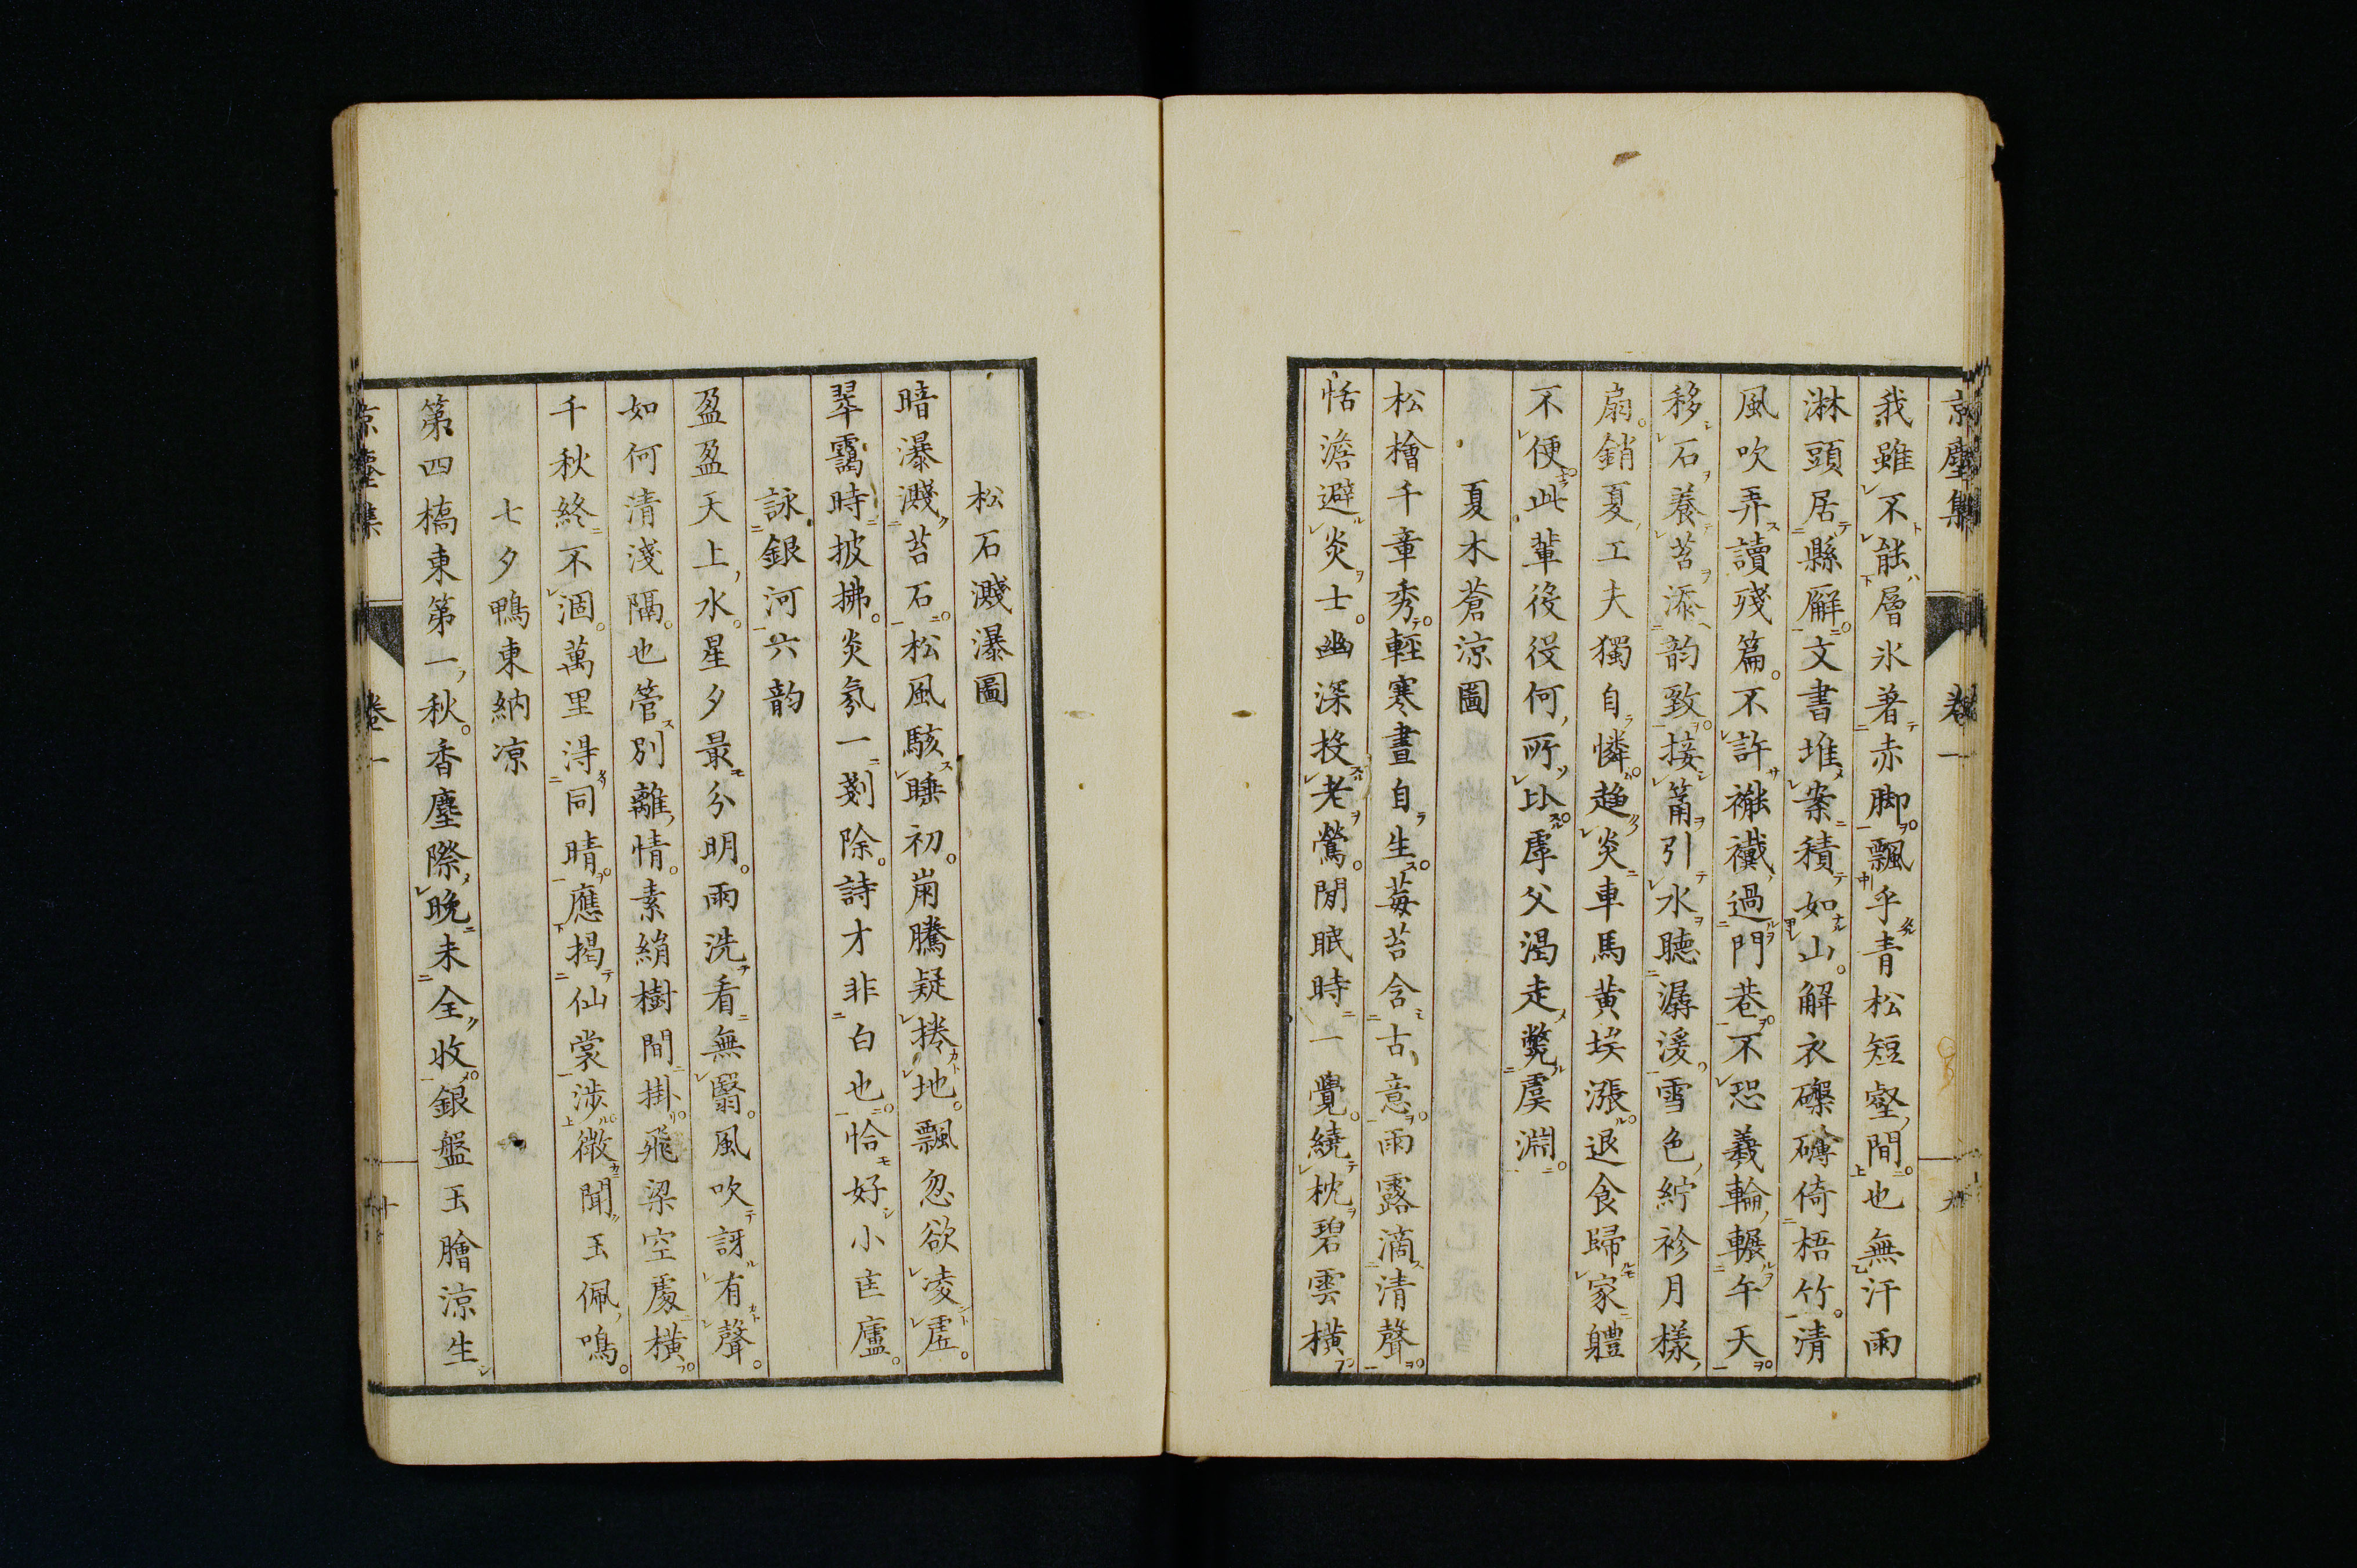 京塵集 卷一 九
我雖不能層氷著赤脚飄乎青松短壑間也無汗雨
淋頭居縣廨文書堆案積如山解衣磔礴倚梧竹清
風吹弄讀殘篇不許襰襶過門巷不恐羲輪輾午天
移石養苔添韵致接筩引水聽潺湲雪色紵衫月樣
扇銷夏工夫獨自憐趍炎車馬黃埃漲退食歸家軆
不便此輩役役何所比虖父渴走斃虞淵
夏木蒼凉圖
松檜千章秀輕寒晝自生莓苔含古意雨露滴清聲
恬澹避炎士幽深投老鶯閒眠時一覺繞枕碧雲橫
松石濺瀑圖
暗瀑濺苔石松風駭睡初崩騰疑捲地飄忽欲凌虛
翠靄時披拂炎氛一剗除詩才非白也恰好小匡廬
詠銀河六韵
盈盈天上水星夕最分明雨洗看無翳風吹訝有聲
如何清淺隔也管別離情素絹樹間掛飛梁空處橫
千秋終不涸萬里得同晴應揭仙裳涉微聞玉佩鳴
七夕鴨東納凉
第四橋東第一秋香塵際晚未全收銀盤玉膾涼生
京塵集 卷一 十